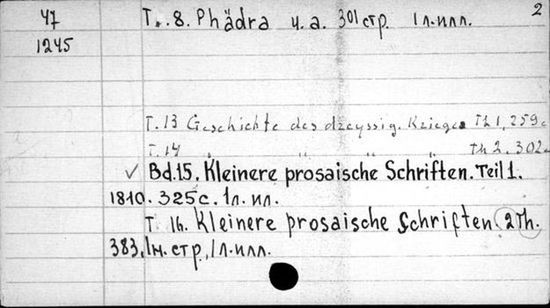 47 T. 8. Phädra u. a. 301 стр. 1 л. илл. 2
1245
T. 13 Geschichte des dreyssig. Krieges Th 1, 259 c
T. 14 " " " " Th 2. 302
✓ Bd. 15. Kleinere prosaische Schriften. Teil 1.
1810. 325 с. 1 л. ил.
T. 16. Kleinere prosaische Schriften 2 Th.
383, 1 н. стр, 1 л. илл.